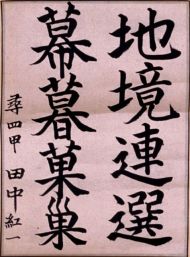 地境連選
幕暮菓巣
尋四甲 田中紅一